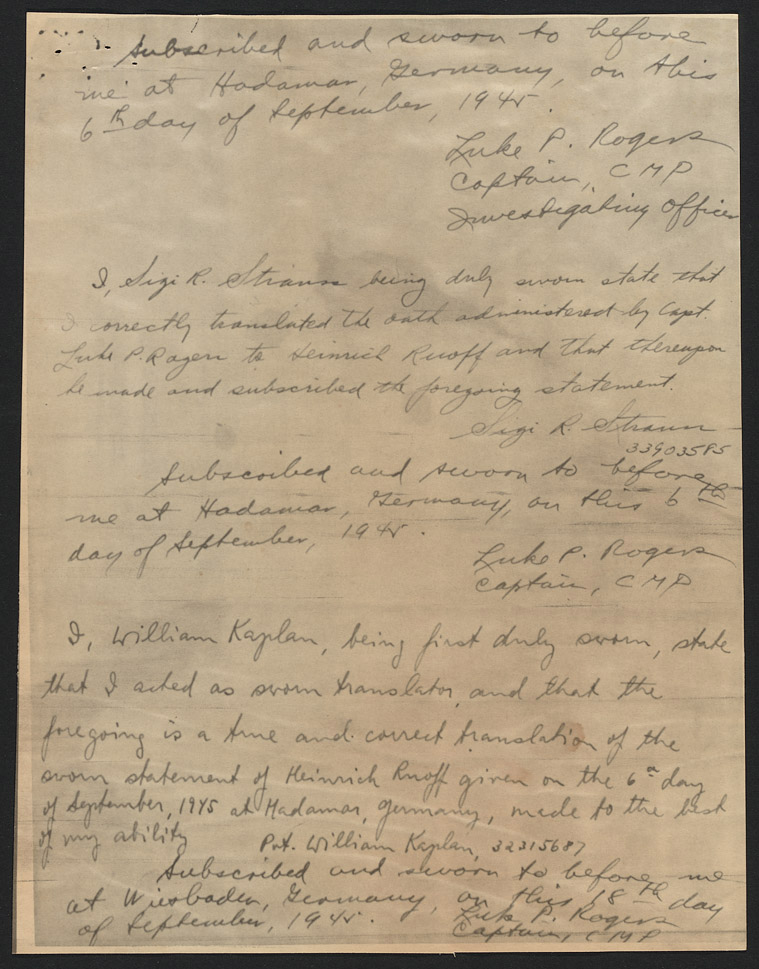 Subscribed and sworn to before
me at Hadamar, Germany, on this
6th day of September, 1945.
Luke P. Rogers
Captain, CMP
Investigating Officer
I, Sigi R. Strauss being duly sworn state that
I correctly translated the oath administered by Capt.
Luke P. Rogers to Heinrich Ruoff and that thereupon
he made and subscribed the foregoing statement.
Sigi R. Strauss
33903585
Subscribed and sworn to before
me at Hadamar, Germany, on this 6th
day of September, 1945.
Luke P. Rogers
Captain, CMP
I, William Kaplan, being first duly sworn, state
that I acted as sworn translator, and that the
foregoing is a true and correct translation of the
sworn statement of Heinrich Ruoff given on the 6th day
of September, 1945 at Hadamar, Germany, made to the best
of my ability
Pvt. William Kaplan, 32315687
Subscribed and sworn to before me
at Wiesbaden, Germany, on this 18th day
of September, 1945.
Luke P. Rogers
Captain, CMP